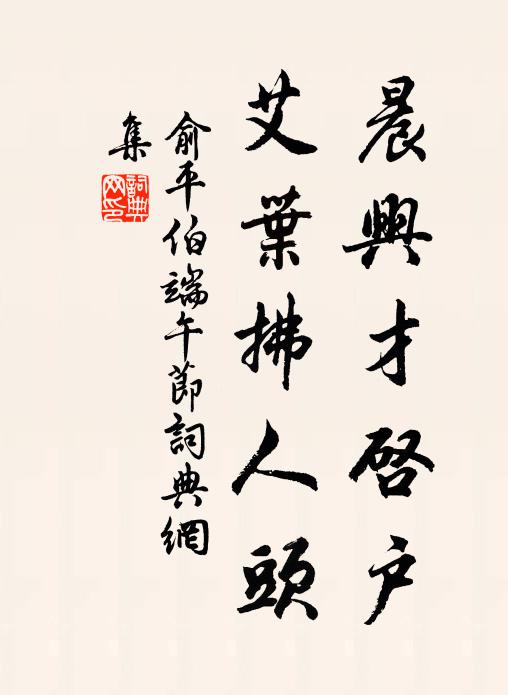 晨興才啓户
艾葉拂人頭
俞平伯端午節詞典網
集
詞典網印